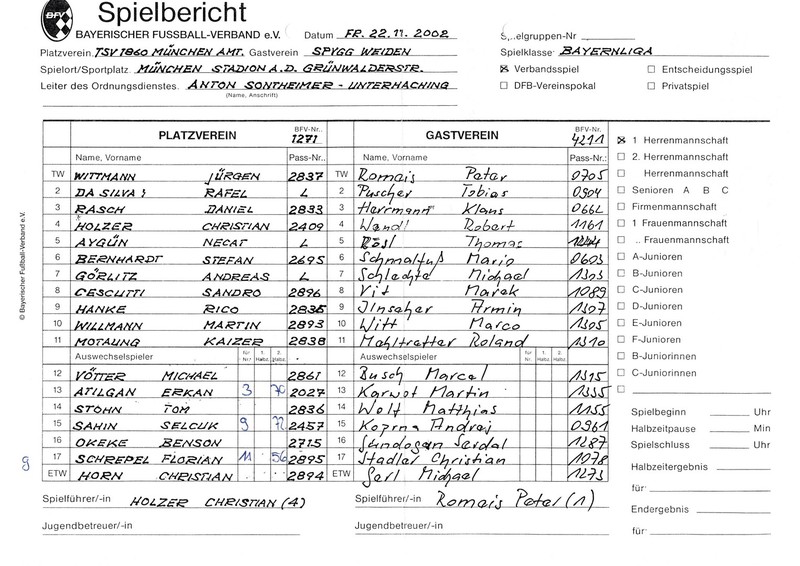 BFV
Spielbericht
BAYERISCHER FUSSBALL-VERBAND e.V. Datum FR. 22.11.2002 elgruppen-Nr
Platzverein TSV 1860 MÜNCHEN AMT. Gastverein SPVGG WEIDEN Spielklasse: BAYERNLIGA
Spielort/Sportplatz MÜNCHEN STADION A.D. GRÜNWALDERSTR. ☒ Verbandsspiel ☐ Entscheidungsspiel
Leiter des Ordnungsdienstes. ANTON SONTHEIMER - UNTERHACHING ☐ DFB-Vereinspokal ☐ Privatspiel
(Name, Anschrift)
PLATZVEREIN BFV-Nr.. 1271 GASTVEREIN BFV-Nr. 4211 ☒ 1 Herrenmannschaft
Name, Vorname Pass-Nr.: Name, Vorname Pass-Nr.: ☐ 2. Herrenmannschaft
TW WITTMANN JÜRGEN 2837 TW Romais Peter 0705 ☐ Herrenmannschaft
2 DA SILVA RAFEL L 2 Puscher Tobias 0904 ☐ Senioren A B C
3 RASCH DANIEL 2833 3 Herrmann Klaus 0662 ☐ Firmenmannschaft
4 HOLZER CHRISTIAN 2409 4 Wendl Robert 1161 ☐ 1 Frauenmannschaft
5 AYGÜN NECAT L 5 Rösl Thomas ☐ .. Frauenmannschaft
6 BERNHARDT STEFAN 2695 6 Schmalfuß Mario 0603 ☐ A-Junioren
7 GÖRLITZ ANDREAS L 7 Schlechte Michael 1303 ☐ B-Junioren
8 CESCUTTI SANDRO 2896 8 Vit Marek 1089 ☐ C-Junioren
9 HANKE RICO 2835 9 Jnscher Armin 1307 ☐ D-Junioren
10 WILLMANN MARTIN 2893 10 Witt Marco 1305 ☐ E-Junioren
11 MOTAUNG KAIZER 2838 11 Mahltretter Roland 1310 ☐ F-Junioren
Auswechselspieler für Nr.: 1. Halbz. 2. Halbz. Auswechselspieler für Nr.: 1. Halbz. 2. Halbz. ☐ B-Juniorinnen
12 VÖTTER MICHAEL 2861 12 Busch Marcel 1315 ☐ C-Juniorinnen
13 ATILGAN ERKAN 3 70 2027 13 Karwot Martin 1335 ☐
14 STOHN TOM 2836 14 Wolf Matthias 1155 Spielbeginn Uhr
15 SAHIN SELCUK 9 72 2457 15 Koprna Andrej 0961 Halbzeitpause Min
16 OKEKE BENSON 2715 16 Gündogan Serdal 1287 Spielschluss Uhr
17 SCHREPEL FLORIAN 11 56 2895 17 Stadler Christian 1078 Halbzeitergebnis
ETW HORN CHRISTIAN 2894 ETW Serl Michael 1273 für:
Spielführer/-in HOLZER CHRISTIAN (4) Spielführer/-in Romais Peter (1) Endergebnis
Jugendbetreuer/-in Jugendbetreuer/-in für:
© Bayerischer Fußball-Verband e.V.
9